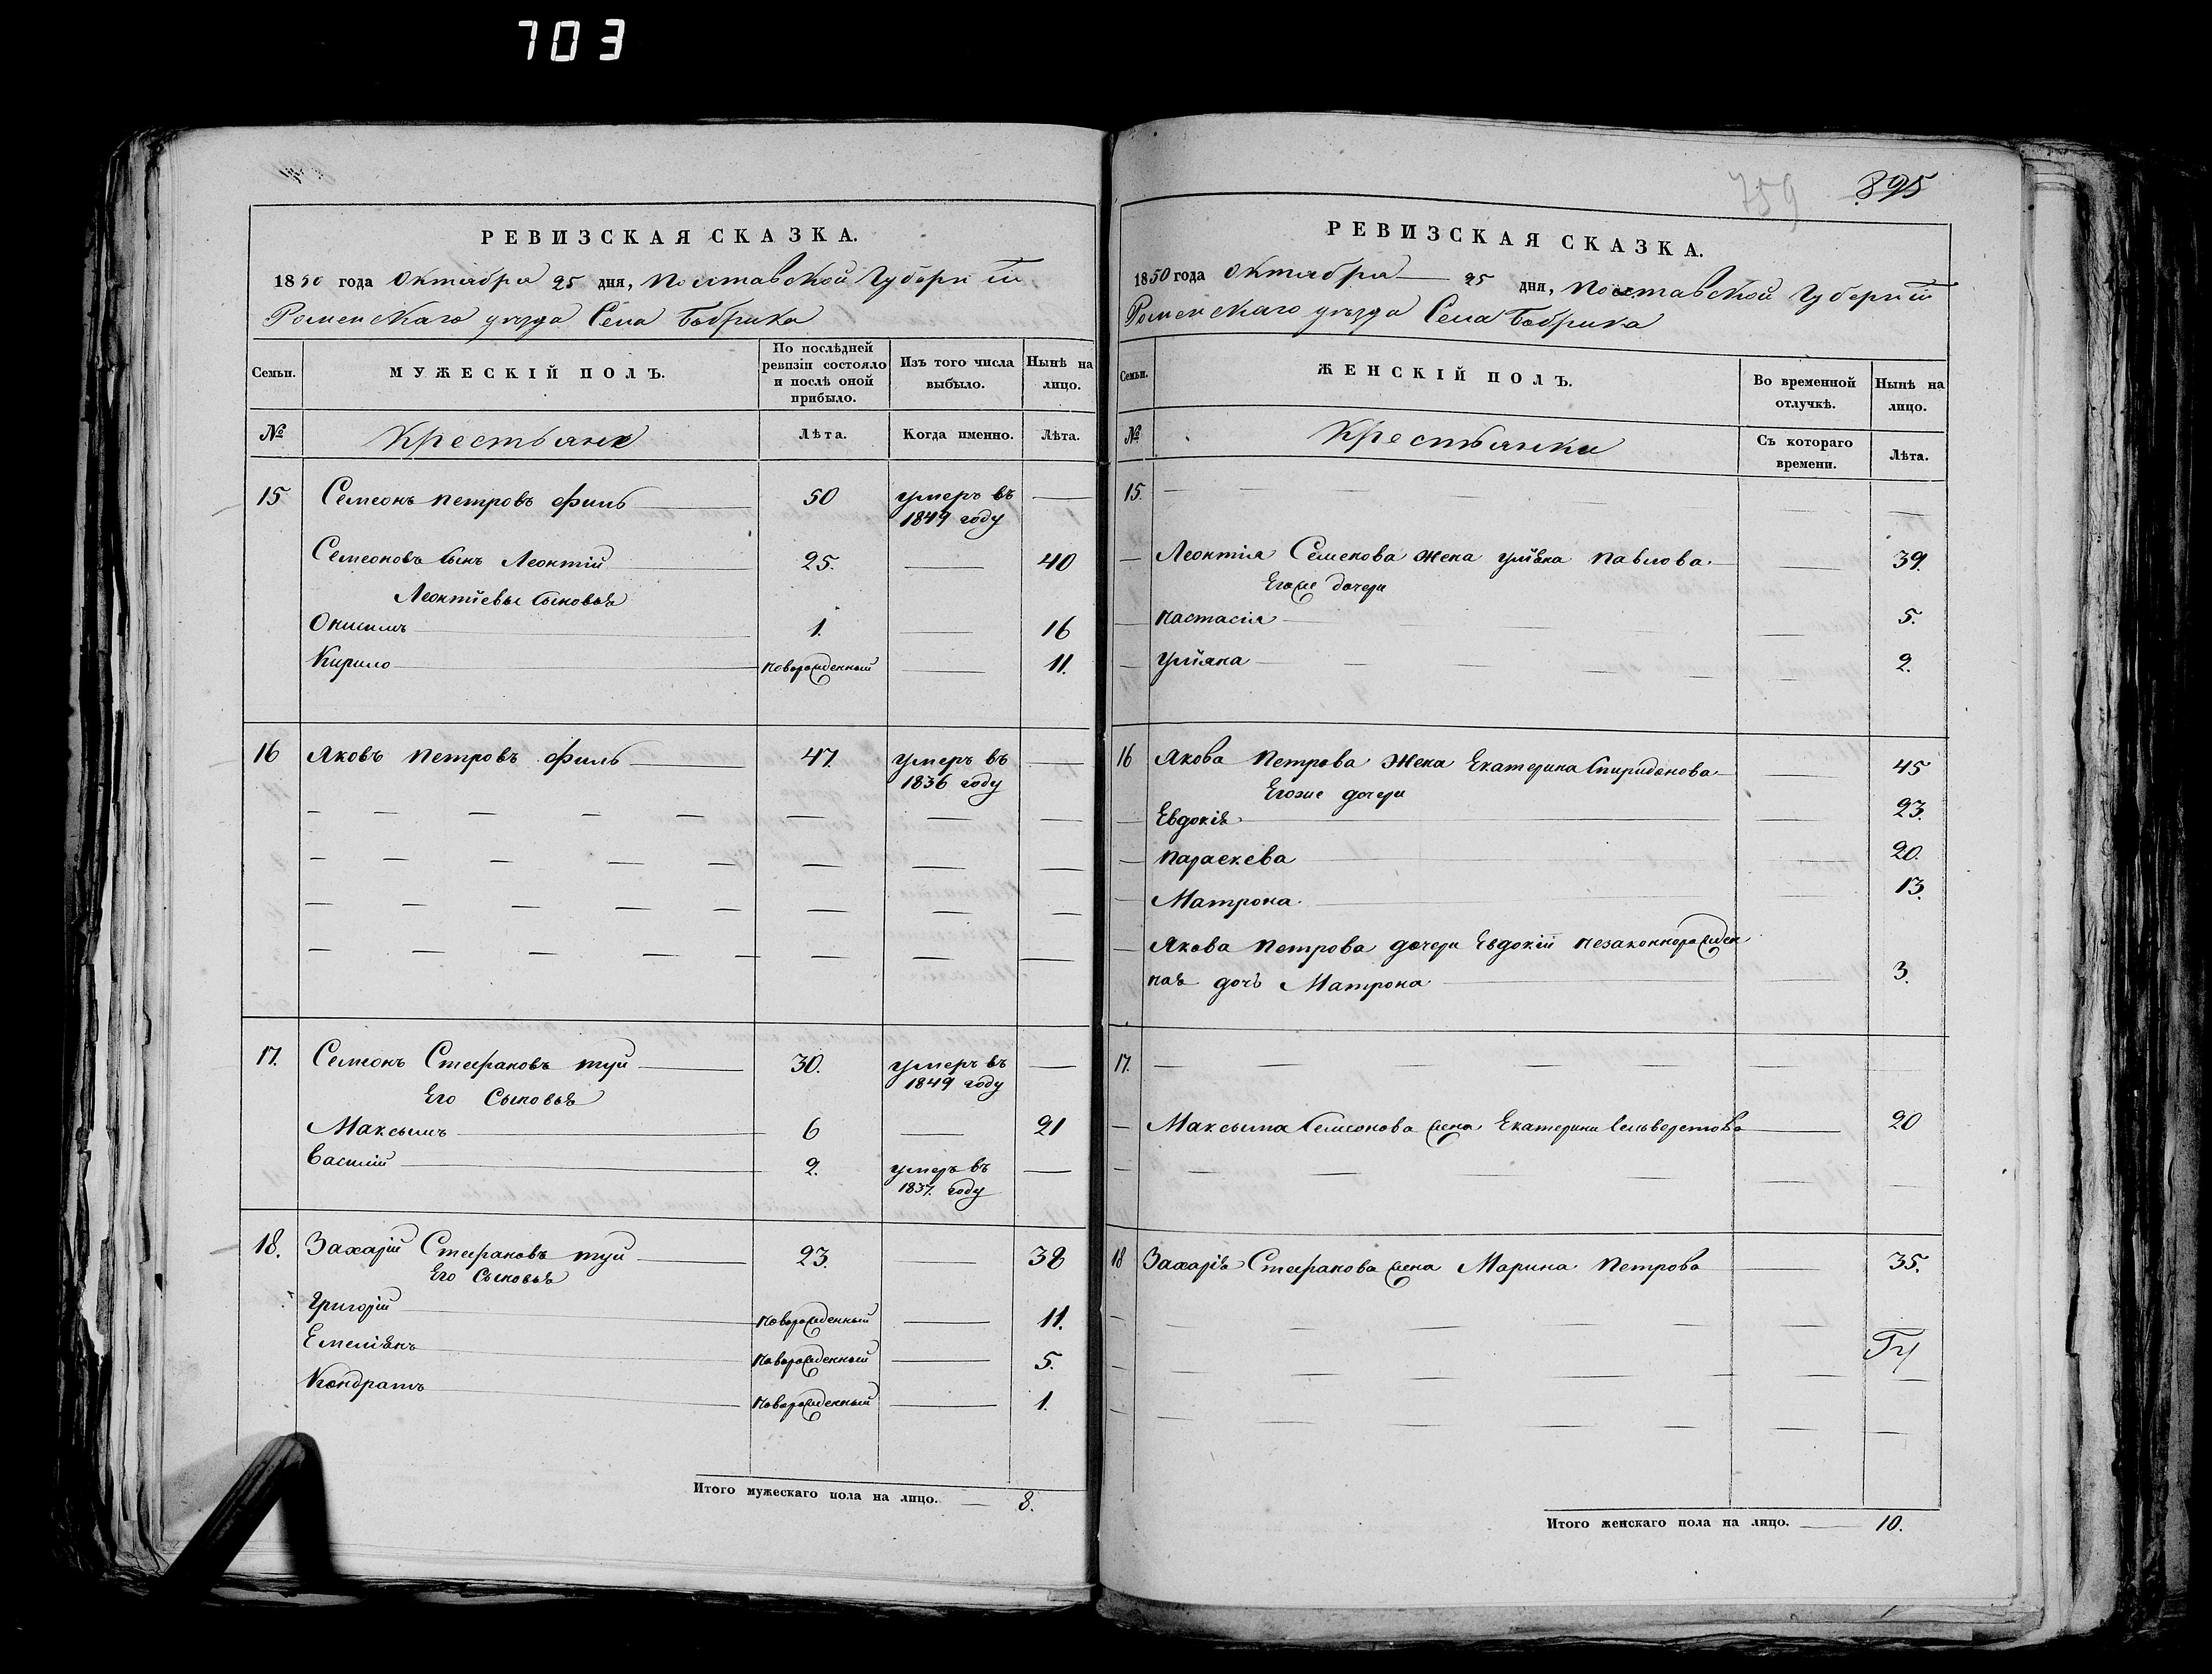 703
РЕВИЗСКАЯ СКАЗКА.
1850 года Октября 25 дня, Полтавской Губерніи
Роменскаго уѣзда Села Бобрика
Семьи.
МУЖЕСКІЙ ПОЛЪ.
По послѣдней ревизіи состояло и послѣ оной прибыло.
Изъ того числа выбыло.
Нынѣ на лицо.
№
Крестьяне
Лѣта.
Когда именно.
Лѣта.
15 Семеонъ Петровъ Филь 50 умеръ въ 1849 году
Семеоновъ сынъ Леонтій 25. 40
Леонтіевы сыновья
Онисимъ 1. 16
Кирило новорожденный 11.
16 Яковъ Петровъ Филь 47. умеръ въ 1836 году
17. Семеонъ Стефановъ Туй 30. умеръ въ 1849 году
Его Сыновья
Максымъ 6 21
Василій 2. умеръ въ 1837. году
18. Захарій Стефановъ Туй 23. 38
Его Сыновья
Григорій новорожденный 11.
Емеліянъ новорожденный 5.
Кондратъ новорожденный 1.
Итого мужескаго пола на лицо. 8.
759 895
РЕВИЗСКАЯ СКАЗКА.
1850 года Октября 25 дня, Полтавской Губерніи
Роменскаго уѣзда Села Бобрика
Семьи.
ЖЕНСКІЙ ПОЛЪ.
Во временной отлучкѣ.
Нынѣ на лицо.
№
Крестьянки
Съ котораго времени.
Лѣта.
15.
Леонтія Семенова жена Уліяна Павлова 39.
Егоже дочери
Настасія 5.
Уліяна 2.
16 Якова Петрова жена Екатерина Спиридонова 45
Егоже дочери
Евдокія 23.
Параскева 20.
Матрона 13.
Якова Петрова дочери Евдокіи незаконнорожден
ная дочь Матрона 3.
17.
Максыма Семеонова жена Екатерина Сельверстова 20
18 Захарія Стефанова жена Марина Петрова 35.
Итого женскаго пола на лицо. 10.